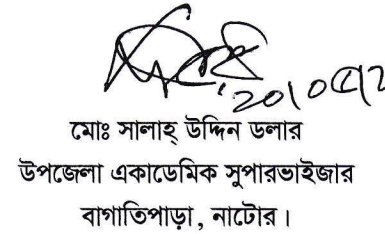 মোঃ সালাহ্ উদ্দিন ডলার
উপজেলা একাডেমিক সুপারভাইজার
বাগাতিপাড়া, নাটোর।